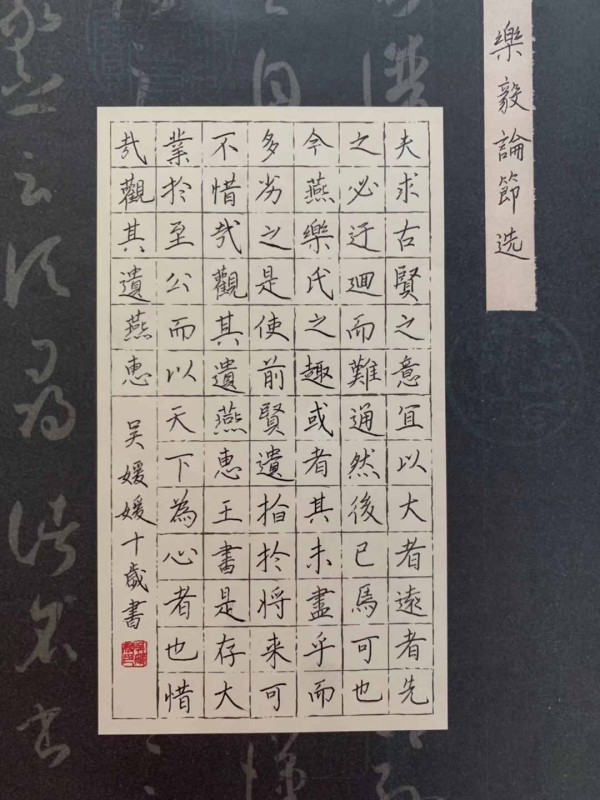 樂毅論節选
夫求古賢之意宜以大者遠者先
之必迂廻而難通然後已焉可也
今燕樂氏之趣或者其未盡乎而
多劣之是使前賢遺指於将来可
不惜㢤觀其遺燕惠王書是存大
業於至公而以天下為心者也惜
㢤觀其遺燕惠
吴媛媛十歲書